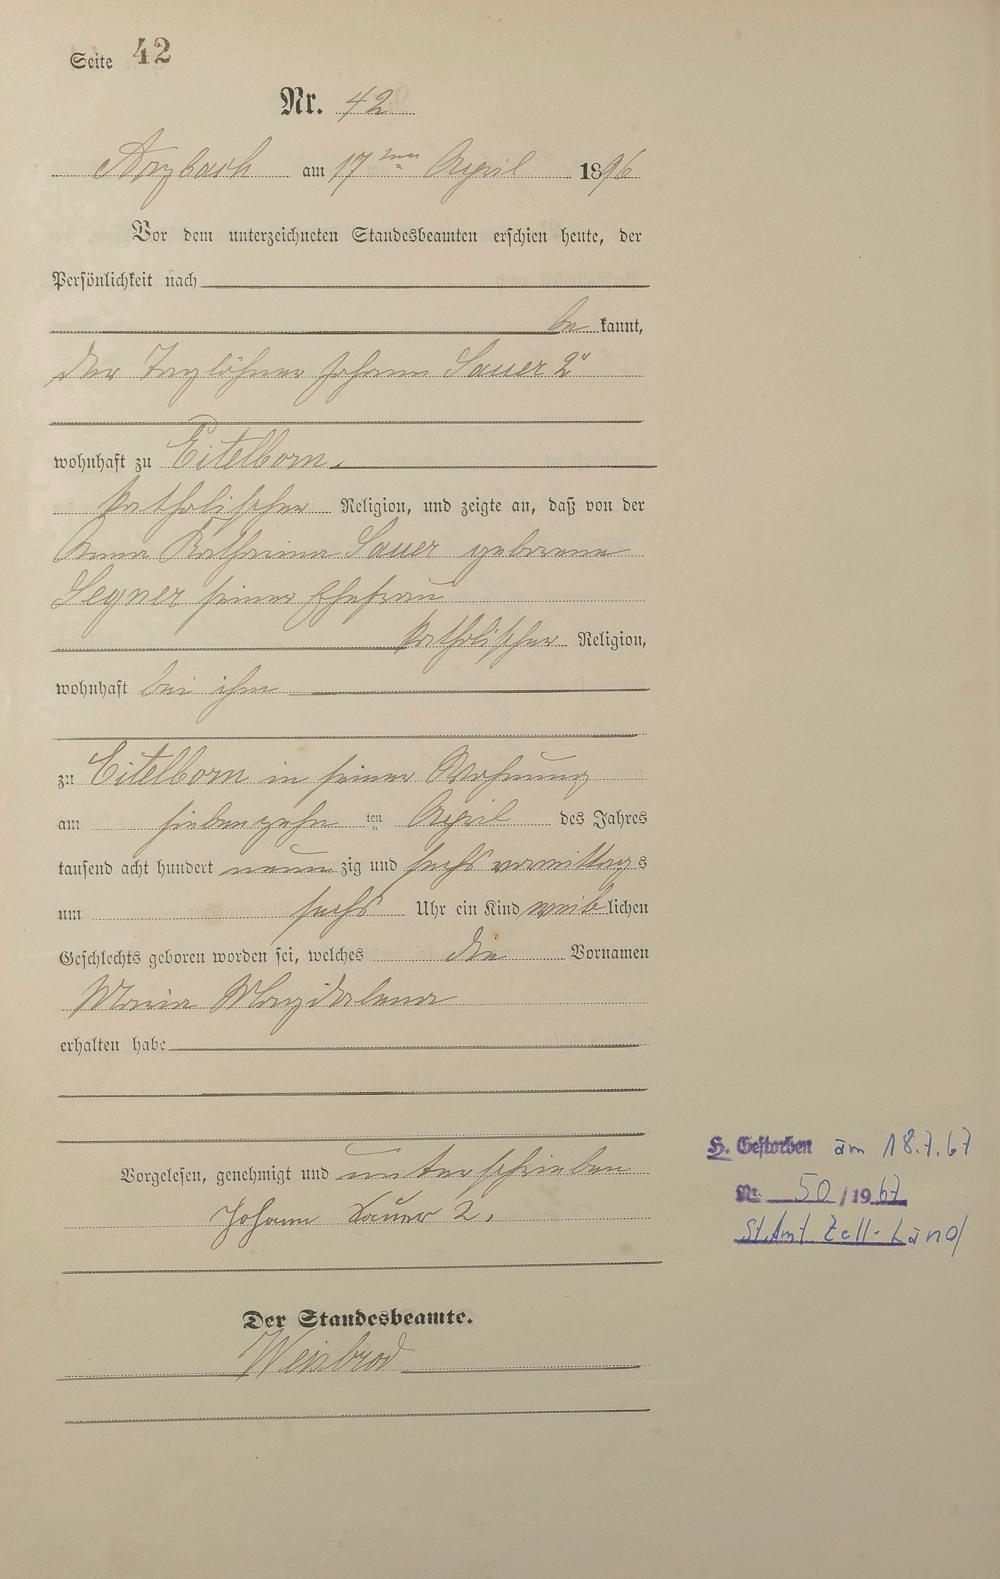 Seite 42
Nr. 42
Arzbach am 17ten April 1896
Vor dem unterzeichneten Standesbeamten erschien heute, der
Persönlichkeit nach
be kannt,
der Taglöhner Johann Sauer 2r
wohnhaft zu Eitelborn.
katholischer Religion, und zeigte an, daß von der
Anna Katharina Sauer geborene
Legner seiner Ehefrau
katholischer Religion,
wohnhaft bei ihm
zu Eitelborn in seiner Wohnung
am siebenzehn ten April des Jahres
tausend acht hundert neun zig und sechs vormittags
um sechs Uhr ein Kind weiblichen
Geschlechts geboren worden sei, welches die Vornamen
Maria Magdalena
erhalten habe
Vorgelesen, genehmigt und unterschrieben
Johann Sauer 2.
Der Standesbeamte.
Weisbrod
H. Gestorben am 18.7.67
Nr. 50/1967
St.Amt Zell-Land